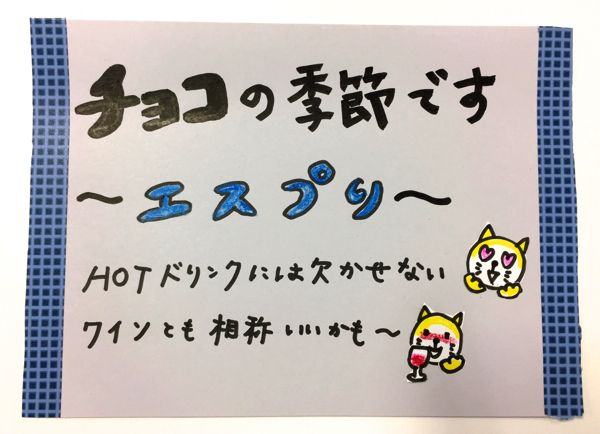 チョコの季節です
～エスプリ～
HOTドリンクには欠かせない
ワインとも相称いいかも～